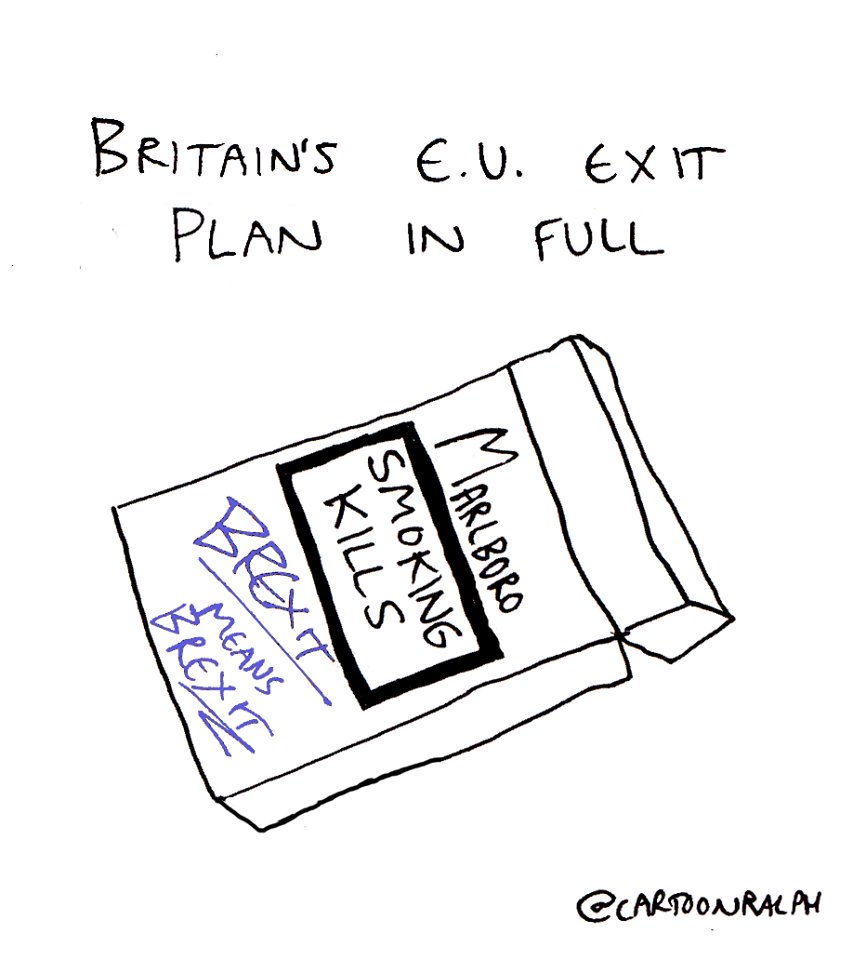 BRITAIN'S E.U. EXIT
PLAN IN FULL
MARLBORO
SMOKING
KILLS
BREXIT
MEANS
BREXIT
@CARTOONRALPH